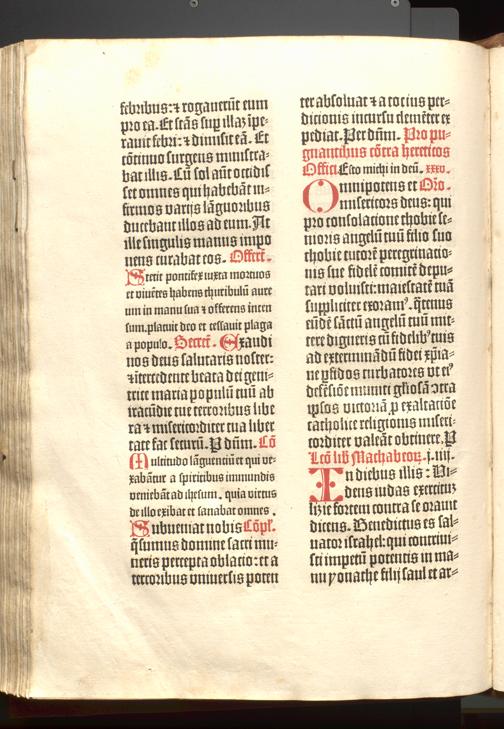 febribus: ⁊ rogauerūt eum
pro ea. Et stās sup̄ illaꝫ īpe⸗
rauit febri: ⁊ dimisit eā. Et
cōtinuo surgens ministra⸗
bat illis. Cū sol aūt occidis
set omnes qui habebāt in⸗
firmos varijs lāguoribus
ducebant illos ad eum. At
ille singulis manus impo
nens curabat eos. Offert̄.
Stetit pontifex iuxta mortuos
et viuētes habens thuribulū aure
um in manu sua ⁊ offerens incen
sum. placuit deo et cessauit plaga
a populo. Secret̄. Exaudi
nos deus salutaris noster:
⁊ ītercedente beata dei geni⸗
trice maria populū tuū ab
iracūdie tue terroribus libe
ra ⁊ misericorditer tua liber
tate fac securū. P dūm. Cō
Multitudo lāguenciū et qui ve⸗
xabātur a spiritibus immundis
veniebāt ad ihesum. quia virtus
de illo exibat et sanabat omnes.
Subueniat nobis Cōpl̄.
q̄sumus domine sacri mu⸗
neris percepta oblatio: et a
terroribus vniuersis poten
ter absoluat ⁊ a tocius per⸗
dicionis incursu demēter ex
pediat. Per dūm. Pro pu⸗
gnantibus cōtra hereticos
Offici Esto michi in deū. xxxv.
Omnipotens et Orō.
misericors deus: qui
pro consolacione thobie se⸗
nioris angelū tuū filio suo
thobie tutorē peregrinatio⸗
nis sue fidelē comitē depu⸗
tari voluisti: maiestatē tuā
suppliciter exoram⁹. q̄tenus
eūdē sāctū angelū tuū mit⸗
tere digneris cū fidelib⁹ tuis
ad exterminādū fidei xp̄ia⸗
ne ꝑfidos turbatores vt ei⁹
defēsiōe muniti gl̄iosā ↄtra
ip̄sos victoriā ꝑ exaltaciōe
catholice religionis miseri⸗
corditer valeāt obtinere. P̄
Lc̄o lib̄ Machabeoꝝ. j. iiij.
In diebus illis: Vi⸗
dens iudas exercituꝫ
lizie fortem contra se orauit
dicens. Benedictus es sal⸗
uator israhel: qui contriui⸗
sti impetū potentis in ma⸗
nu yonathe filij saul et ar⸗